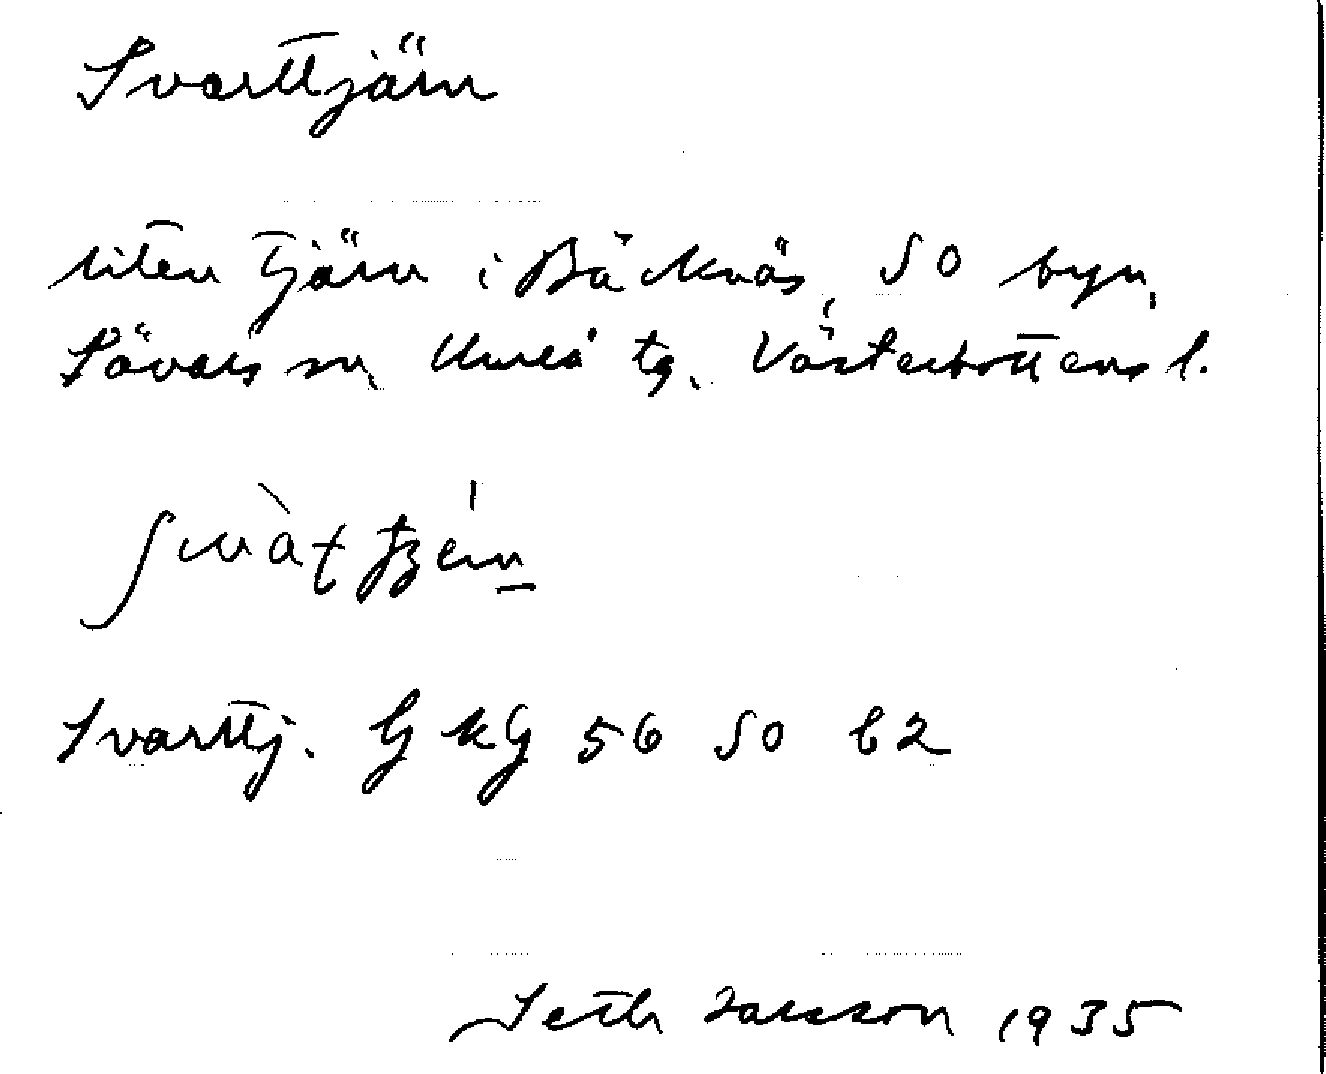 Svarttjärn
liten tjärn i Bäcknäs, SO byn,
Sävars sn, Umeå tg. Västerbottens l.
Svarttj. GkG 56 SO b2
Seth Larsson 1935